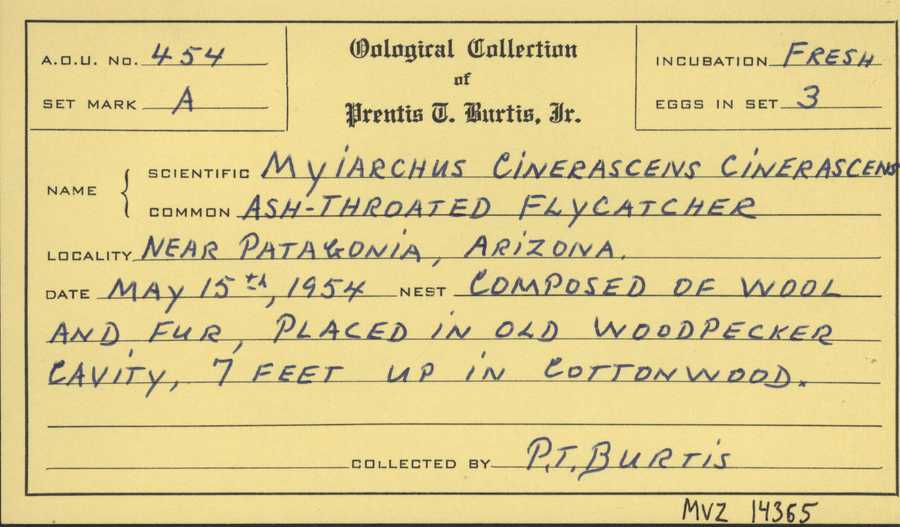 A.O.U. No. 454
Oological Collection
of
Prentis T. Burtis, Jr.
INCUBATION FRESH
SET MARK A
EGGS IN SET 3
NAME { SCIENTIFIC MyiARCHUS CiNERASCENS CiNERASCENS
COMMON ASH-THROATED FLYCATCHER
LOCALITY NEAR PATAGONiA, ARiZONA.
DATE MAY 15th, 1954 NEST COMPOSED OF WOOL
AND FUR, PLACED iN OLD WOODPECKER
CAViTY, 7 FEET UP iN COTTONWOOD.
COLLECTED BY P.T. BURTiS
MVZ 14365